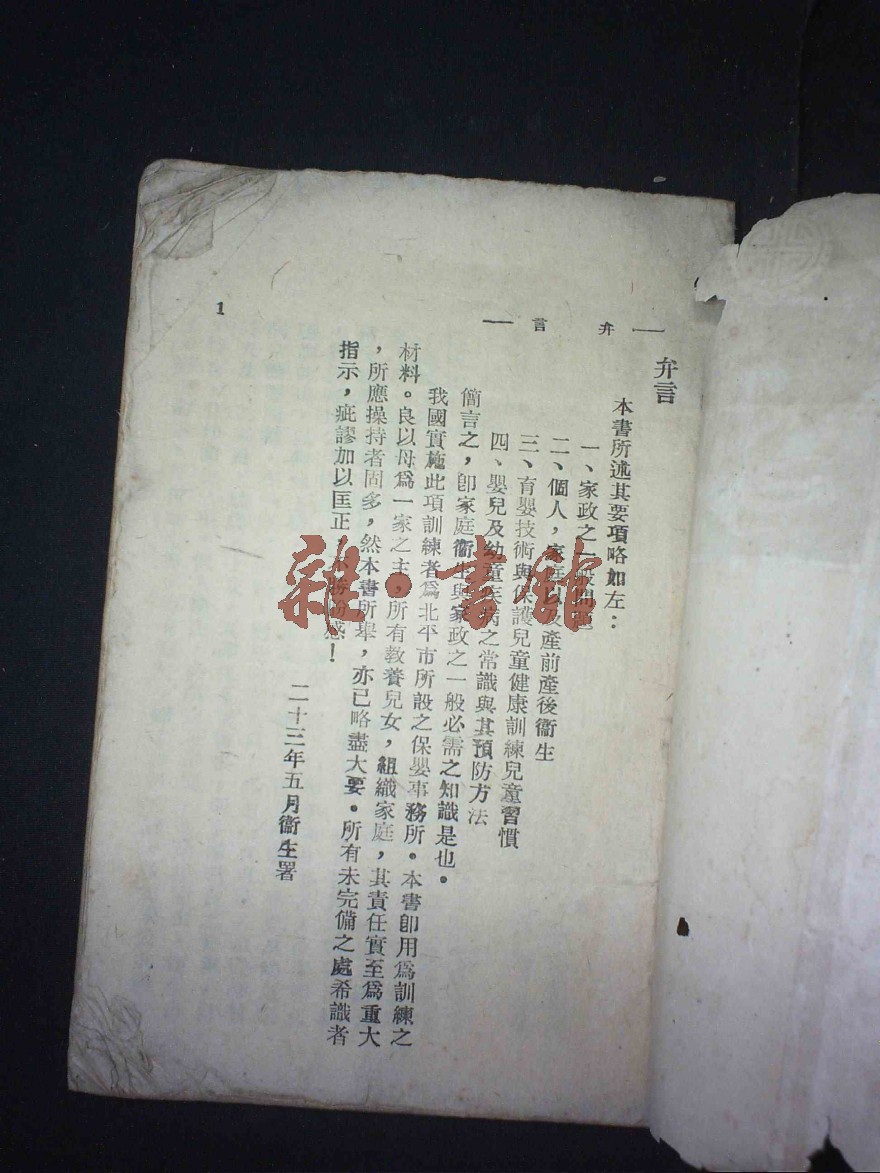 弁言
1
弁言
本書所述其要項略如左：
一、家政之一般問題
二、個人，家庭以及產前產後衞生
三、育嬰技術與保護兒童健康訓練兒童習慣
四、嬰兒及幼童疾病之常識與其預防方法
簡言之，卽家庭衞生與家政之一般必需之知識是也。
我國實施此項訓練者爲北平市所設之保嬰事務所。本書卽用爲訓練之
材料。良以母爲一家之主，所有教養兒女，組織家庭，其責任實至爲重大
，所應操持者固多，然本書所舉，亦已略盡大要。所有未完備之處希識者
指示，疵謬加以匡正，不勝感！
二十三年五月衞生署
雜·書館